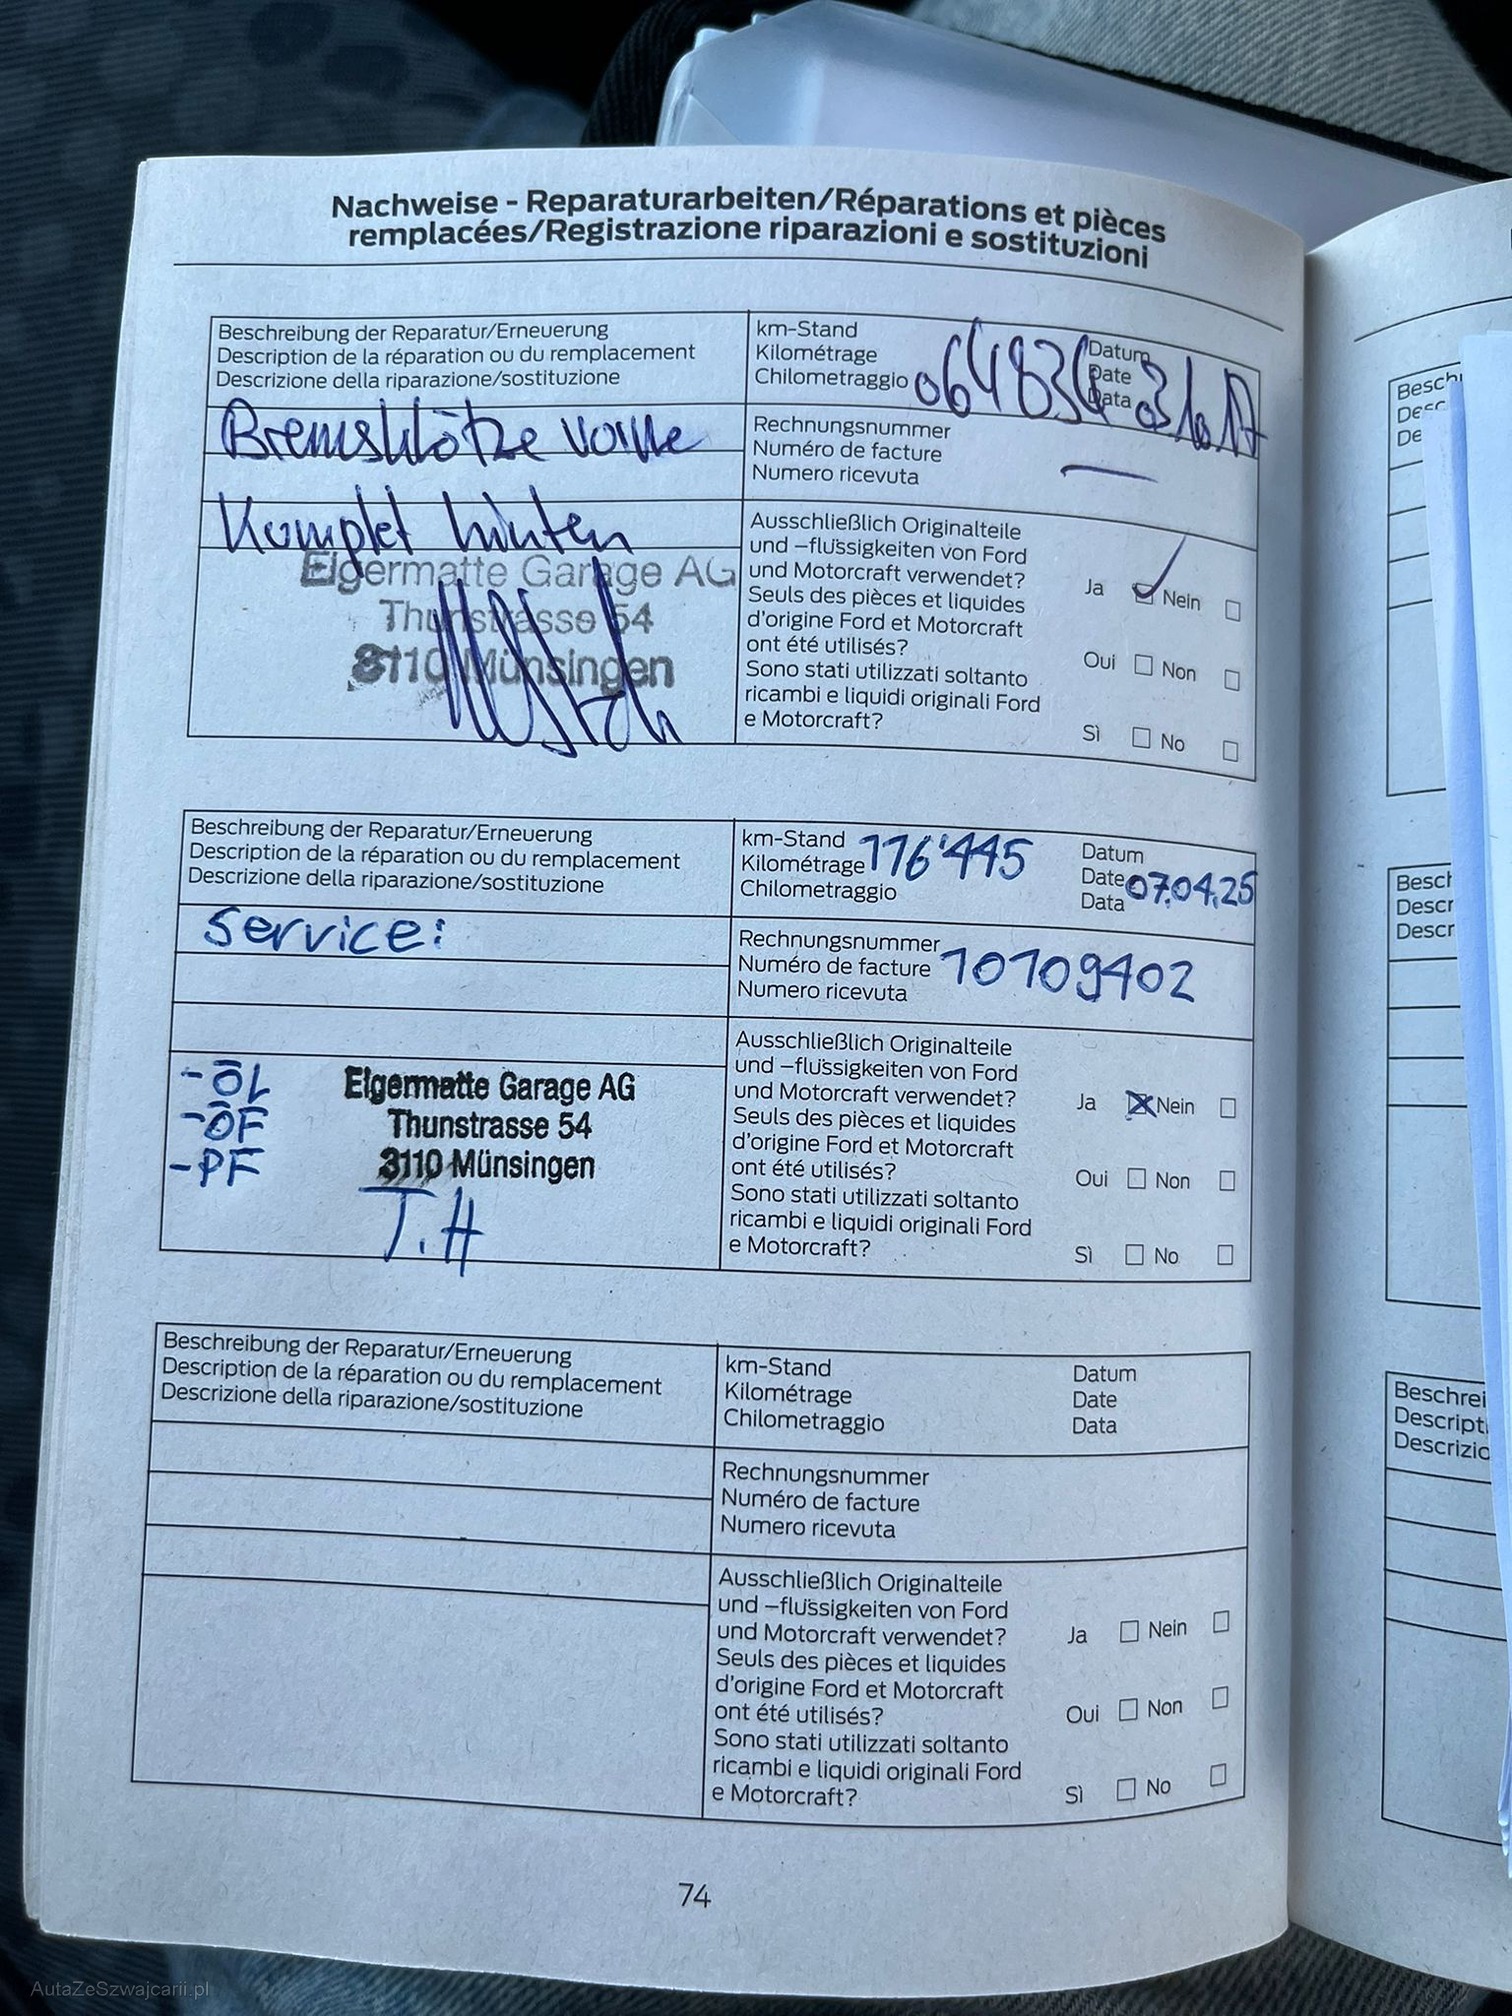 Nachweise - Reparaturarbeiten/Réparations et pièces
remplacées/Registrazione riparazioni e sostituzioni
Beschreibung der Reparatur/Erneuerung
Description de la réparation ou du remplacement
Descrizione della riparazione/sostituzione
km-Stand
Kilométrage
Chilometraggio
Datum
Date
Data
Bremsklötze vorne
Rechnungsnummer
Numéro de facture
Numero ricevuta
Komplet hinten
Eigermatte Garage AG
Thunstrasse 54
3110 Münsingen
Ausschließlich Originalteile
und –flüssigkeiten von Ford
und Motorcraft verwendet?
Ja Nein
Seuls des pièces et liquides
d'origine Ford et Motorcraft
ont été utilisés?
Oui Non
Sono stati utilizzati soltanto
ricambi e liquidi originali Ford
e Motorcraft?
Sì No
Beschreibung der Reparatur/Erneuerung
Description de la réparation ou du remplacement
Descrizione della riparazione/sostituzione
km-Stand
Kilométrage 116'445
Chilometraggio
Datum
Date 07.04.25
Data
Service:
Rechnungsnummer
Numéro de facture 10109402
Numero ricevuta
-ÖL
-ÖF
-PF
Eigermatte Garage AG
Thunstrasse 54
3110 Münsingen
T.H
Ausschließlich Originalteile
und –flüssigkeiten von Ford
und Motorcraft verwendet?
Ja Nein
Seuls des pièces et liquides
d'origine Ford et Motorcraft
ont été utilisés?
Oui Non
Sono stati utilizzati soltanto
ricambi e liquidi originali Ford
e Motorcraft?
Sì No
Beschreibung der Reparatur/Erneuerung
Description de la réparation ou du remplacement
Descrizione della riparazione/sostituzione
km-Stand
Kilométrage
Chilometraggio
Datum
Date
Data
Rechnungsnummer
Numéro de facture
Numero ricevuta
Ausschließlich Originalteile
und –flüssigkeiten von Ford
und Motorcraft verwendet?
Ja Nein
Seuls des pièces et liquides
d'origine Ford et Motorcraft
ont été utilisés?
Oui Non
Sono stati utilizzati soltanto
ricambi e liquidi originali Ford
e Motorcraft?
Sì No
74
Besch
Desc
De
Besch
Descr
Descr
Beschrei
Descript
Descrizio
AutaZeSzwajcarii.pl